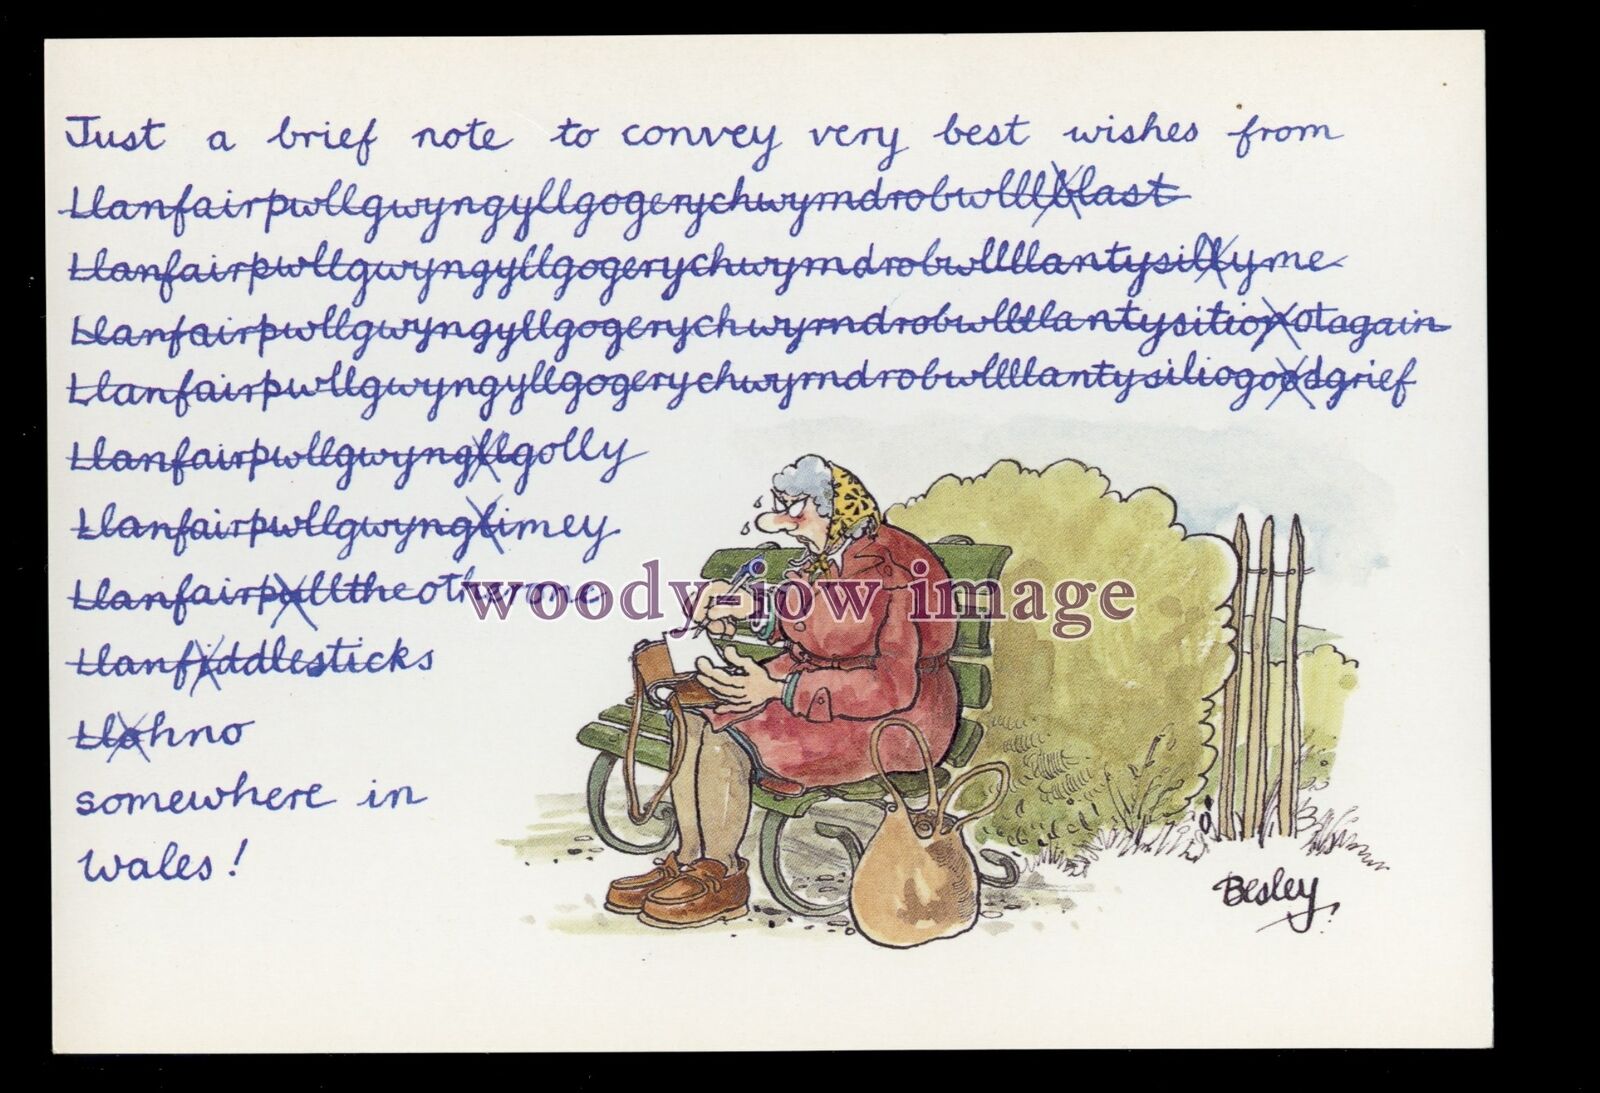 Just a brief note to convey very best wishes from
Llanfairpwllgwyngyllgogerychwymdrobwlllblast
Llanfairpwllgwyngyllgogerychwymdrobwllllantysillyme
Llanfairpwllgwyngyllgogerychwymdrobwllllantysitionotagain
Llanfairpwllgwyngyllgogerychwymdrobwllllantysiliogoodgrief
Llanfairpwllgwyngllgolly
Llanfairpwllgwynglimey
Llanfairpulltheotherone
Llanfiddlesticks
Llohno
somewhere in
Wales!
woody-iow image
Besley